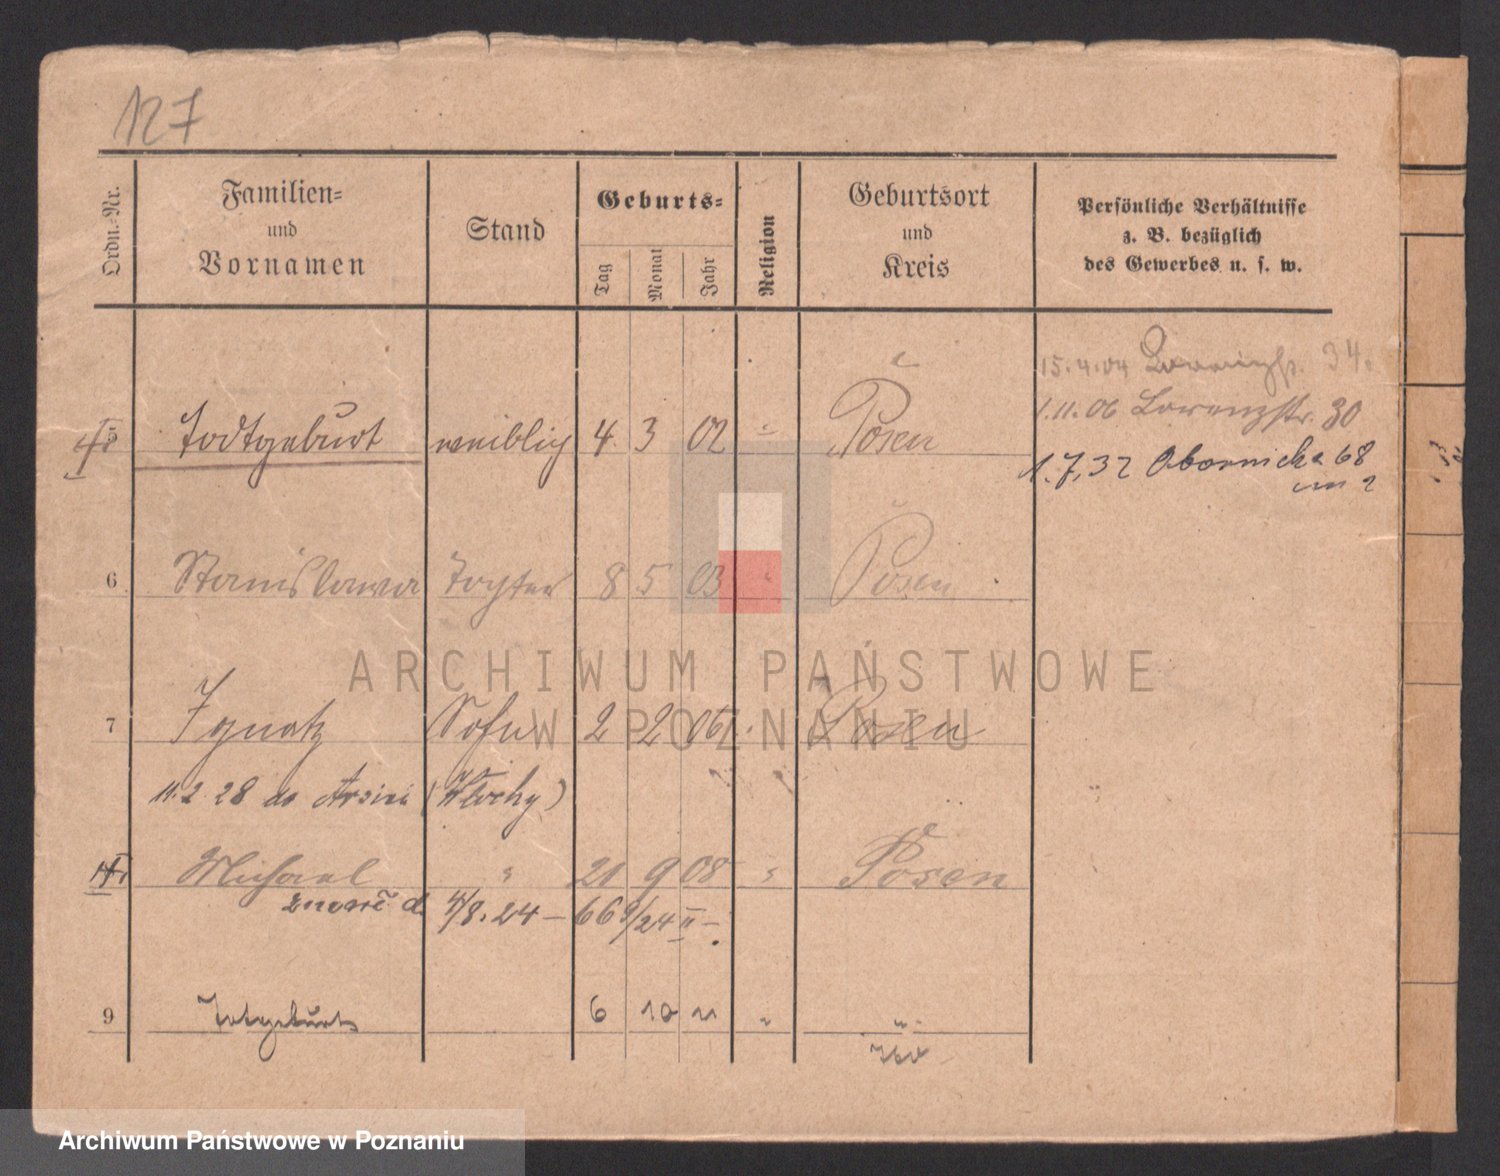 127
Ordn.-Nr.
Familien-
und
Vornamen
Stand
Geburts-
Tag
Monat
Jahr
Religion
Geburtsort
und
Kreis
Persönliche Verhältnisse
z. B. bezüglich
des Gewerbes u. s. w.
15.4.04 34.
1.11.06 Lorenzstr. 30
5 Todtgeburt weiblich 4 3 02 " Posen
1.7.32 Obornicka 68
m 2
6 Stanislawa Tochter 8 5 03 " Posen
ARCHIWUM PAŃSTWOWE
W POZNANIU
7 Ignatz Sohn 2 2 06 Posen
11.2.28 do (Włochy)
Michael " 21 9 08 " Posen
d. 4/8.24 – 66 9/24 II –
9 Totgeburt 6 10 11 " "
Archiwum Państwowe w Poznaniu